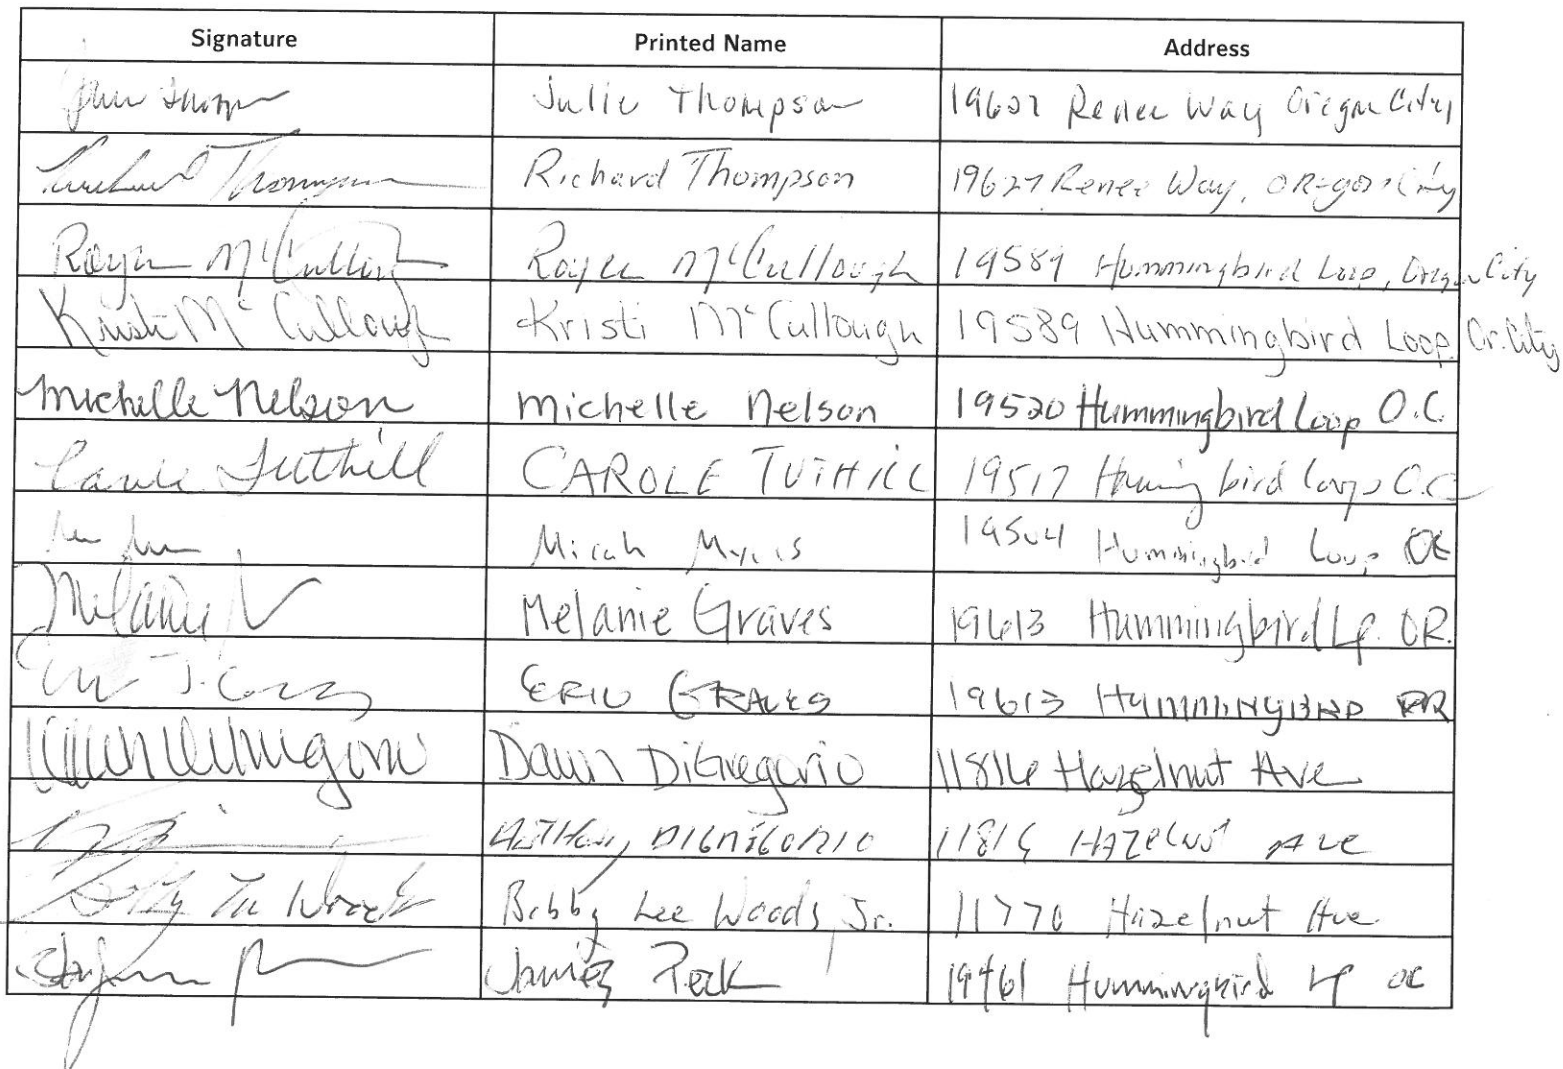 Signature Printed Name Address
Julie Thompson 19627 Renee Way Oregon City
Richard Thompson Richard Thompson 19627 Renee Way, Oregon City
McCullough McCullough 19589 Hummingbird Loop, Oregon City
Kristi McCullough Kristi McCullough 19589 Hummingbird Loop, Or. City
Michelle Nelson Michelle Nelson 19520 Hummingbird Loop O.C.
Carole Tuthill CAROLE TUTHILL 19517 bird O.C.
Micah Myers 19504 Hummingbird Loop OC
Melanie Melanie Graves 19613 Hummingbird Lp. OR.
ERIC GRAVES 19613 HUMMINGBIRD
Dawn DiGregorio Dawn DiGregorio 11816 Hazelnut Ave
Anthony DIGREGORIO 11816 HAZELNUT AVE
Bobby Lee Woods Bobby Lee Woods, Jr. 11770 Hazelnut Ave
Peck 19461 Hummingbird Lp OC